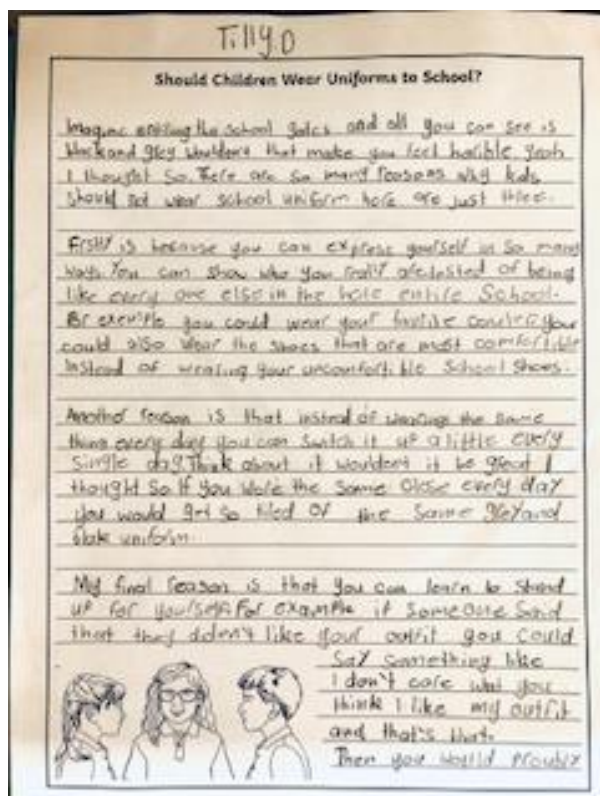 Tilly.D
Should Children Wear Uniforms to School?
Imagine entering the school gates and all you can see is
black and grey wouldn't that make you feel horible yeah
I thought so. There are so many reasons why kids
should not wear school uniform here are just three.
Firstly is because you can express yourself in so many
ways. You can show who you really are insted of being
like every one else in the hole entire School.
For example you could wear your favrite your
could also wear the shoes that are most comfortible
instead of wearing your uncomfortible School shoes.
Another reason is that instead of wearing the same
thing every day you can switch it up a little every
single day. Think about it wouldent it be great I
thought so If you wore the same close every day
you would get so tired of the same grey and
blak uniform.
My final reason is that you can learn to stand
up for yourself. For example if someone said
that they didn't like your outfit you could
say something like
I don't care what you
think I like my outfit
and that's that.
Then you would